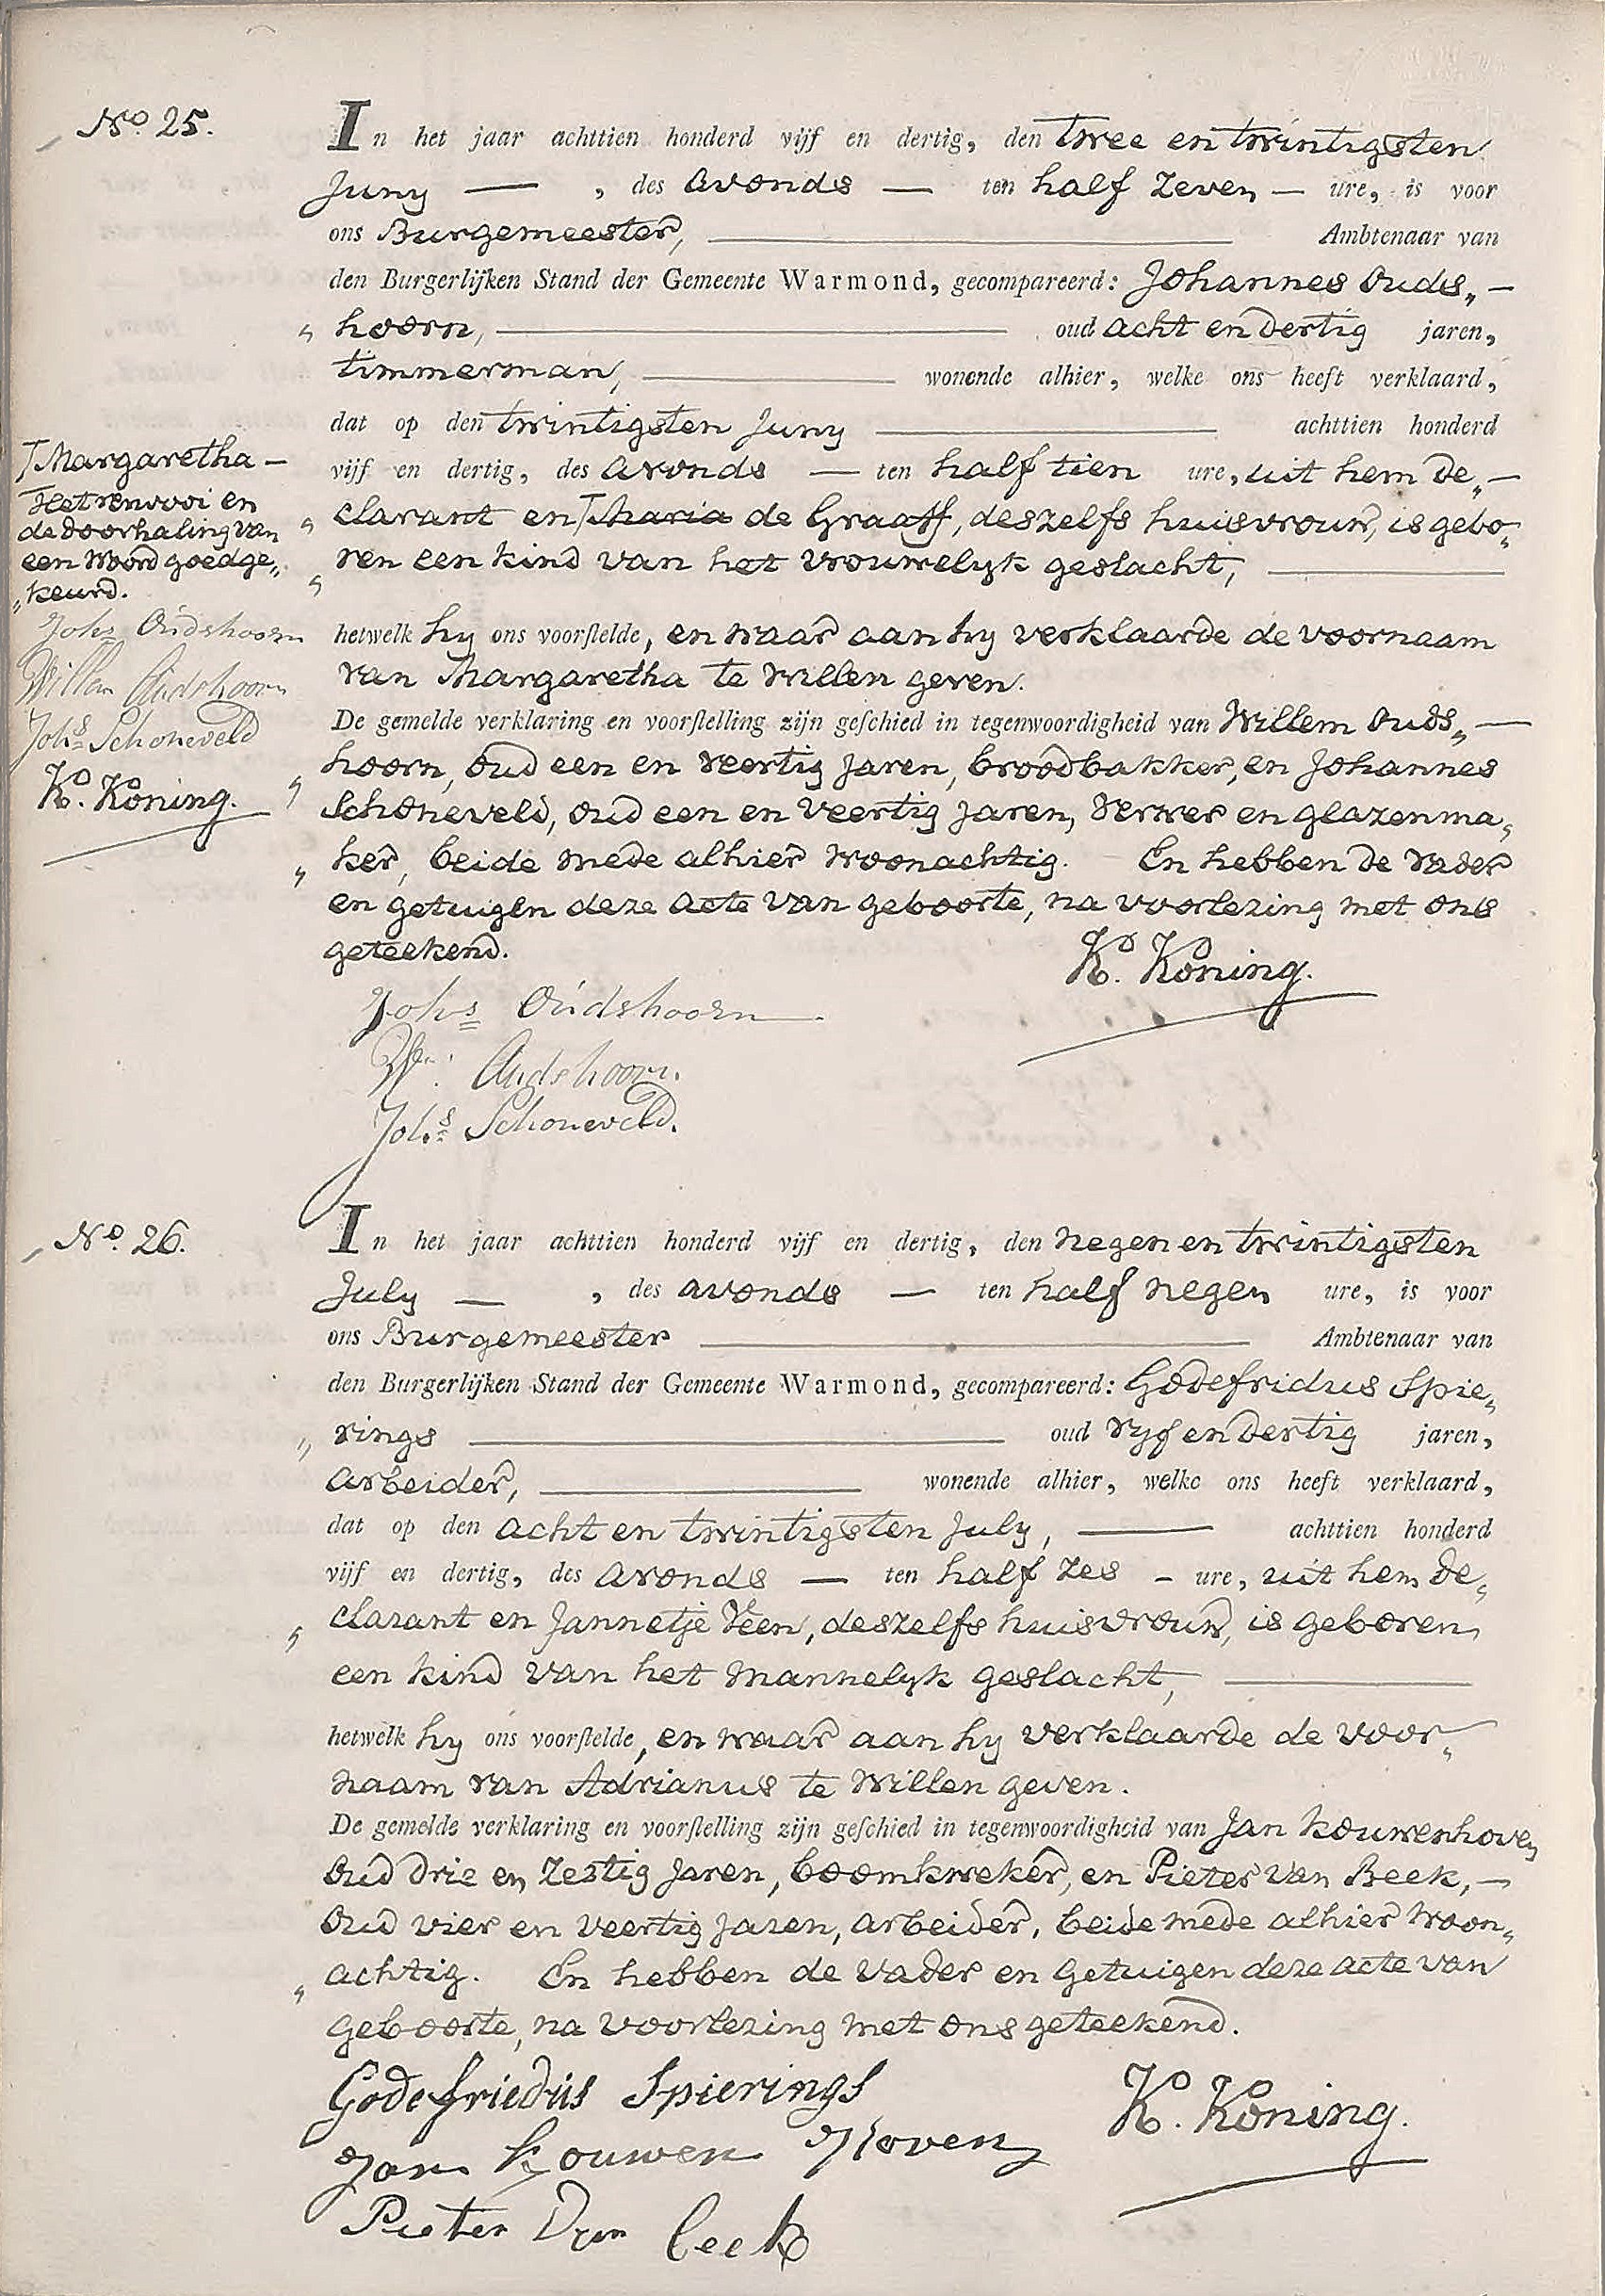 No. 25.
In het jaar achttien honderd vijf en dertig, den twee en twintigsten
Juny — , des avonds — ten half zeven — ure, is voor
ons Burgemeester, Ambtenaar van
den Burgerlijken Stand der Gemeente Warmond, gecompareerd: Johannes Ouds„ —
„ hoorn, oud acht en dertig jaren,
timmerman, wonende alhier, welke ons heeft verklaard,
dat op den twintigsten Juny achttien honderd
vijf en dertig, des avonds — ten half tien ure, uit hem de„ —
„ clarant en ⌈Maria de Graaff, deszelfs huisvrouw, is gebo„
„ ren een kind van het vrouwelyk geslacht,
hetwelk hy ons voorstelde, en waar aan hy verklaarde de voornaam
van Margaretha te willen geven.
De gemelde verklaring en voorstelling zijn geschied in tegenwoordigheid van Willem Ouds„ —
„ hoorn, oud een en veertig jaren, broodbakker, en Johannes
Schoneveld, oud een en veertig jaren, verwer en glazenma„
„ ker, beide mede alhier woonachtig. En hebben de vader
en getuigen deze acte van geboorte, na voorlezing met ons
geteekend.
Ko. Koning.
Johs Oudshoorn
Wm. Oudshoorn.
Johs Schoneveld.
⌈Margaretha —
Het renvooi en
de doorhaling van
een woord goedge„
„keurd.
Johs Oudshoorn
Willem Oudshoorn
Johs Schoneveld
Ko. Koning.
No. 26.
In het jaar achttien honderd vijf en dertig, den negen en twintigsten
July — , des avonds — ten half negen ure, is voor
ons Burgemeester Ambtenaar van
den Burgerlijken Stand der Gemeente Warmond, gecompareerd: Godefridus Spie„
„ rings oud vyf en dertig jaren,
arbeider, wonende alhier, welke ons heeft verklaard,
dat op den acht en twintigsten July, achttien honderd
vijf en dertig, des avonds — ten half zes – ure, uit hem de„
„ clarant en Jannetje Veen, deszelfs huisvrouw, is geboren
een kind van het mannelyk geslacht,
hetwelk hy ons voorstelde, en waar aan hy verklaarde de voor„
naam van Adrianus te willen geven.
De gemelde verklaring en voorstelling zijn geschied in tegenwoordigheid van Jan Kouwenhoven
oud drie en zestig jaren, boomkweker, en Pieter van Beek, —
oud vier en veertig jaren, arbeider, beide mede alhier woon„
„ achtig. En hebben de vader en getuigen deze acte van
geboorte, na voorlezing met ons geteekend.
Godefriedus Spierings
Ko. Koning.
Jan Kouwen Hoven
Pieter Van Beek